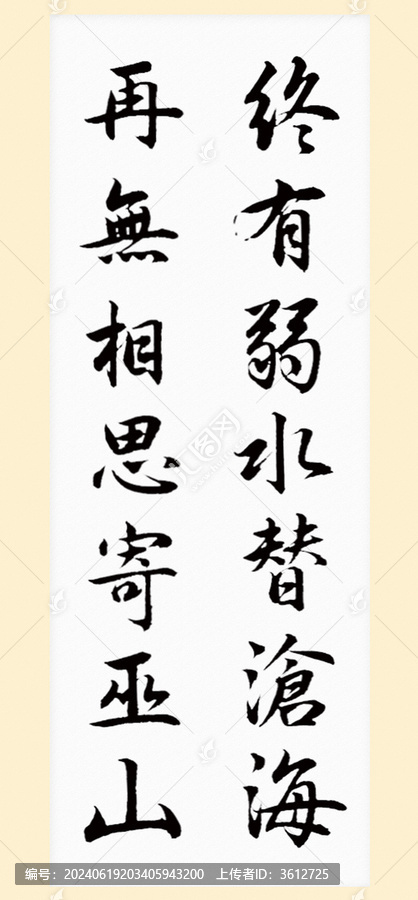 終有弱水替滄海
再無相思寄巫山
编号：20240619203405943200 上传者ID：3612725